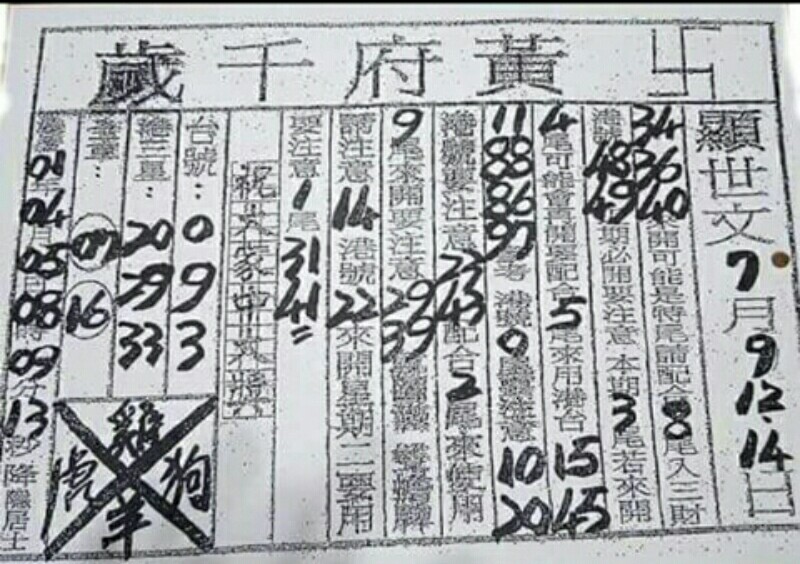 卍 黃府千歲
顯世文 7月9.12.14日
34 36 40 來開可能是特尾請配合8尾入三財
港號48 49 期必開要注意本期3尾若來開
4尾可能會再開要配合5尾來用港台 15 45
11 88 86 97 參考港號0尾 注意 10 20
港號要注意 22 43 配合2尾來使用
9尾來開要注意 29 39
請注意 14 港號 22 來開星期二要用
要注意 1尾 31 41
祝大家中大獎
台號: 0 9 3
港二星: 20 29 33
07 16
01年04月05日08時09分13秒降 居士
雞 虎 狗 羊